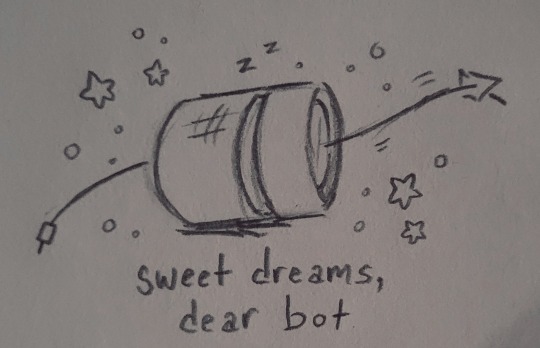 z z
sweet dreams,
dear bot